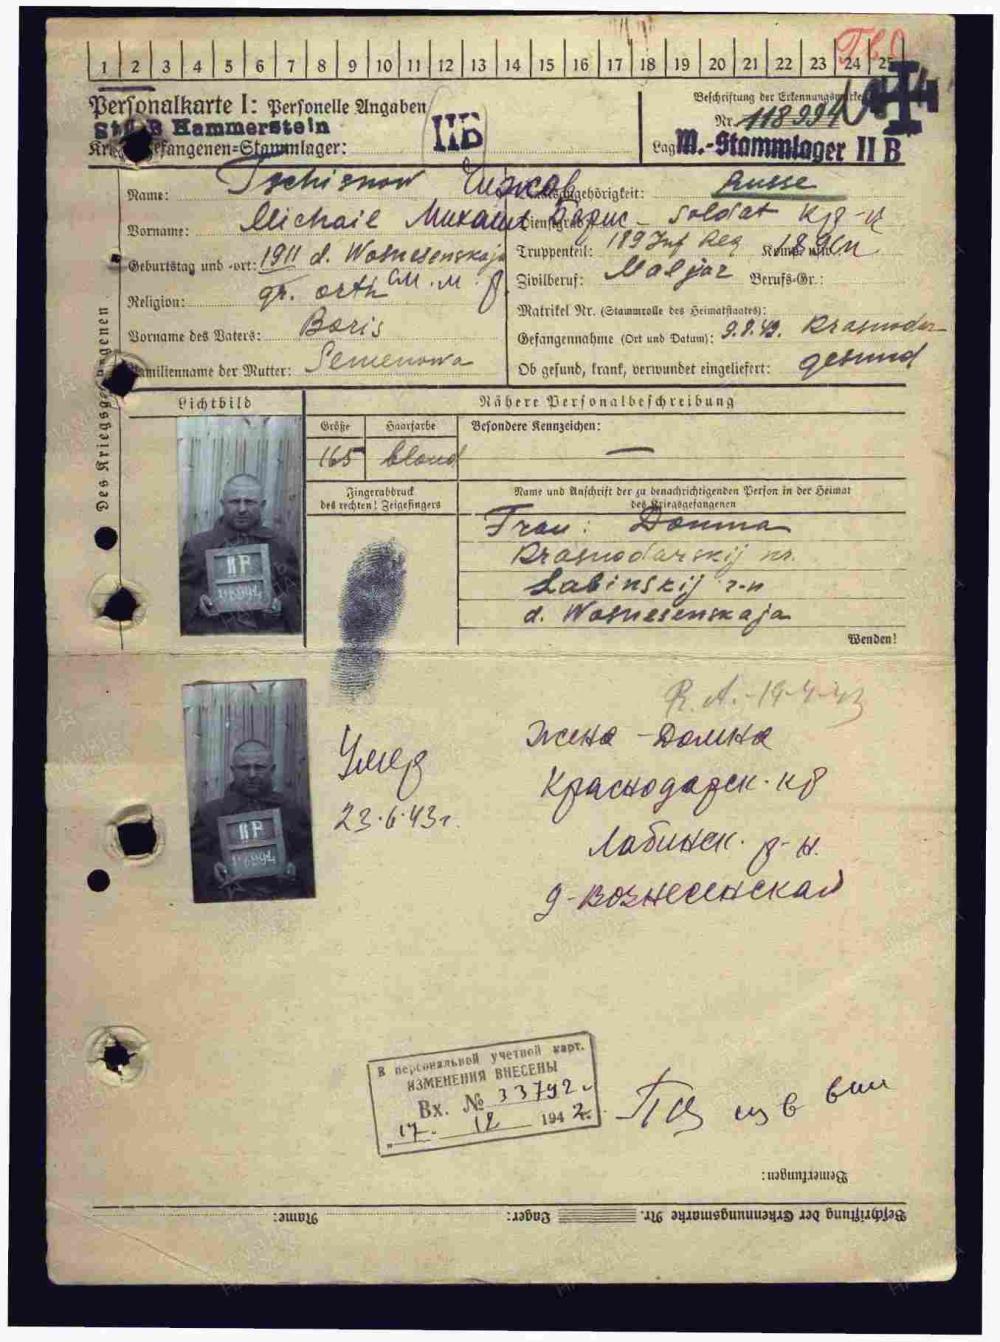 1 2 3 4 5 6 7 8 9 10 11 12 13 14 15 16 17 18 19 20 21 22 23 24 25
Personalkarte I: Personelle Angaben
Hammerstein
Kriegsgefangenen=Stammlager:
IIB
Beschriftung der Erkennungsmarke
Nr. 118994
Lag M.-Stammlager II B
Des Kriegsgefangenen
Name: Tschisnow Чижов
Vorname: Michail Михаил Борис
Geburtstag und -ort: 1911 d. Wosnesenskaja
Religion: gr. orth
Vorname des Vaters: Boris
Familienname der Mutter: Semenowa
Staatsangehörigkeit: Russe
Dienstgrad: Soldat кр-ц
Truppenteil: 189 Inf Reg Komp. usw.: 189 сп
Zivilberuf: Maljar Berufs-Gr.:
Matrikel Nr. (Stammrolle des Heimatstaates):
Gefangennahme (Ort und Datum): 9.8.42. Krasnodar
Ob gesund, krank, verwundet eingeliefert: gesund
Lichtbild
Nähere Personalbeschreibung
Größe Haarfarbe Besondere Kennzeichen:
165 blond —
Fingerabdruck
des rechten! Zeigefingers
Name und Anschrift der zu benachrichtigenden Person in der Heimat
des Kriegsgefangenen
Frau: Domna
Krasnodarskij kr.
Labinskij r-n
d. Wosnesenskaja
Wenden!
R. A. -19-4-43
Умер
23.6.43г.
Жена - Домна
Краснодарск. кр
Лабинск. р-н.
д-Вознесенская
В персональной учетной карт.
ИЗМЕНЕНИЯ ВНЕСЕНЫ
Вх. № 33792
„17. 12 1942 г.
Bemerkungen:
Beschriftung der Erkennungsmarke Nr. Lager: Name: